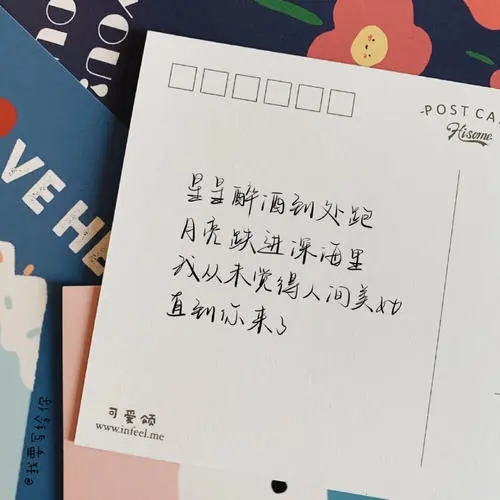 YOU!
POST CA
Hisome
星星醉酒到处跑
月亮跌进深海里
我从未觉得人间美好
直到你来了
可爱颂
www.infeel.me
VE HE
@我要写给你